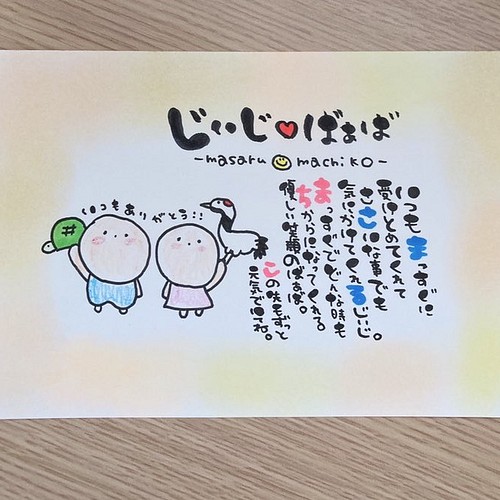 じいじ♥ばぁば
-masaru machiko-
いつもありがとう!!
いつもまっすぐに
受けとめてくれて
ささいな事でも
気にかけてくれるじいじ。
まっすぐでどんな時も
ちからになってくれる。
優しい笑顔のばぁば。
この先もずっと
元気で居てね。